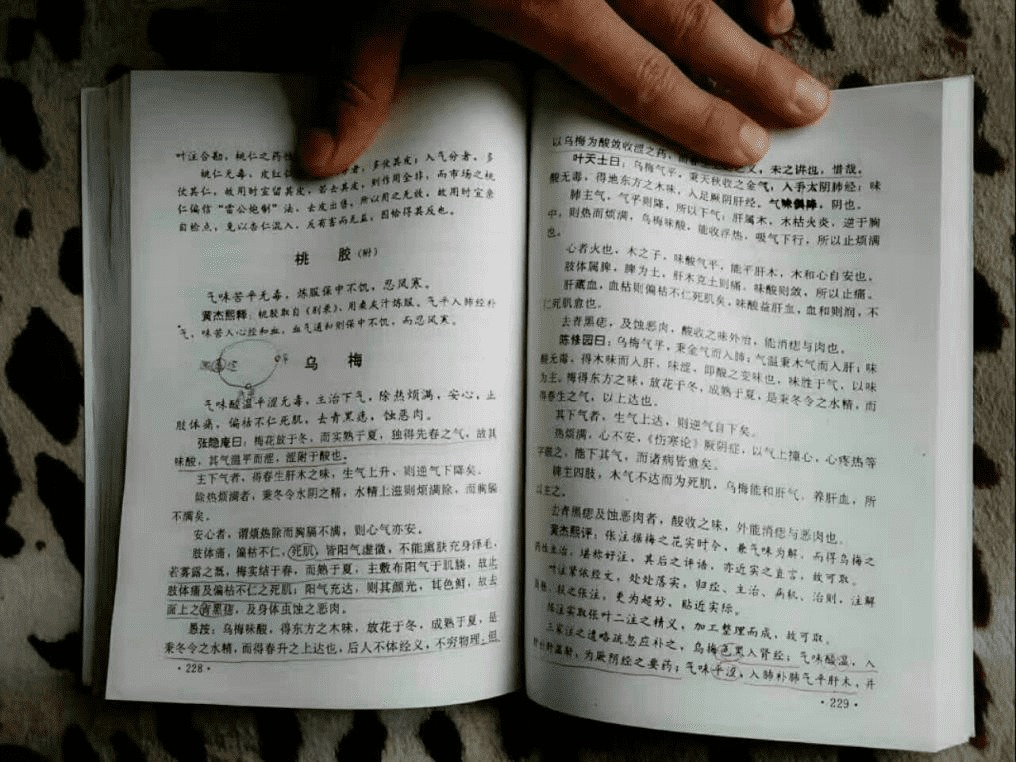 叶注合勘，桃仁之药性
者，多伏其皮；入气分者，多
桃仁无毒，皮红仁
伏其仁，故用时宜留其皮，若去其皮，则作用全非，而市场之桃
仁偏信“雷公炮制”法，去皮出售，所以用之无效，故用时宜亲
自检点，免以杏仁混入，反有害而无益，因恰得其反也。
桃 胶(附)
气味苦平无毒，炼服保中不饥，忍风寒。
黄杰熙释：桃胶取自《别录》，用桑灰汁炼服，气平入肺经补
气，味苦入心经和血，血气通和则保中不饥，而忍风寒。
乌 梅
气味酸温平涩无毒，主治下气，除热烦满，安心，止
肢体痛，偏枯不仁死肌，去青黑痣，蚀恶肉。
张隐庵曰：梅花放于冬，而实熟于夏，独得先春之气，故其
味酸，其气温平而涩，涩附于酸也。
主下气者，得春生肝木之味，生气上升，则逆气下降矣。
除热烦满者，秉冬令水阴之精，水精上滋则烦满除，而胸膈
不满矣。
安心者，谓烦热除而胸膈不满，则心气亦安。
肢体痛，偏枯不仁，死肌，皆阳气虚微，不能熏肤充身泽毛，
若雾露之溉，梅实结于春，而熟于夏，主敷布阳气于肌腠，故止
肢体痛及偏枯不仁之死肌；阳气充达，则其颜光，其色鲜，故去
面上之青黑痣，及身体虫蚀之恶肉。
愚按：乌梅味酸，得东方之木味，放花于冬，成熟于夏，是
秉冬令之水精，而得春升之上达也，后人不体经义，不穷物理，但
·228·
以乌梅为酸敛收涩之药，
之义，未之讲也，惜哉。
叶天士曰：乌梅气平，秉天秋收之金气，入手太阴肺经；味
酸无毒，得地东方之木味，入足厥阴肝经。气味俱降，阴也。
肺主气，气平则降，所以下气；肝属木，木枯火炎，逆于胸
中，则热而烦满，乌梅味酸，能收浮热，吸气下行，所以止烦满
也。
心者火也，木之子，味酸气平，能平肝木，木和心自安也。
肢体属脾，脾为土，肝木克土则痛，味酸则敛，所以止痛。
肝藏血，血枯则偏枯不仁死肌矣，味酸益肝血，血和则润，不
仁死肌愈也。
去青黑痣，及蚀恶肉，酸收之味外治，能消痣与肉也。
陈修园曰：乌梅气平，秉金气而入肺；气温秉木气而入肝；味
酸无毒，得木味而入肝，味涩，即酸之变味也，味胜于气，以味
为主。梅得东方之味，放花于冬，成熟于夏，是秉冬令之水精，而
得春生之气，以上达也。
其下气者，生气上达，则逆气自下矣。
热烦满，心不安，《伤寒论》厥阴症，以气上撞心，心疼热等
字概之，能下其气，而诸病皆愈矣。
脾主四肢，木气不达而为死肌，乌梅能和肝气，养肝血，所
以主之。
去青黑痣及蚀恶肉者，酸收之味，外能消痣与恶肉也。
黄杰熙评：张注据梅之花实时令，兼气味为解，而得乌梅之
药性主治，堪称好注，其后之评语，亦近实之直言，故可取。
叶注紧依经文，处处落实，归经、主治、病机、治则，注解
较之张注，更为超妙，贴近实际。
陈注实取张叶二注之精义，加工整理而成，故可取。
三家注之遗略疏忽应补之，乌梅色黑入肾经；气味酸温，入
肝温肝，为厥阴经之要药；气味平涩，入肺补肺气平肝木，并
·229·